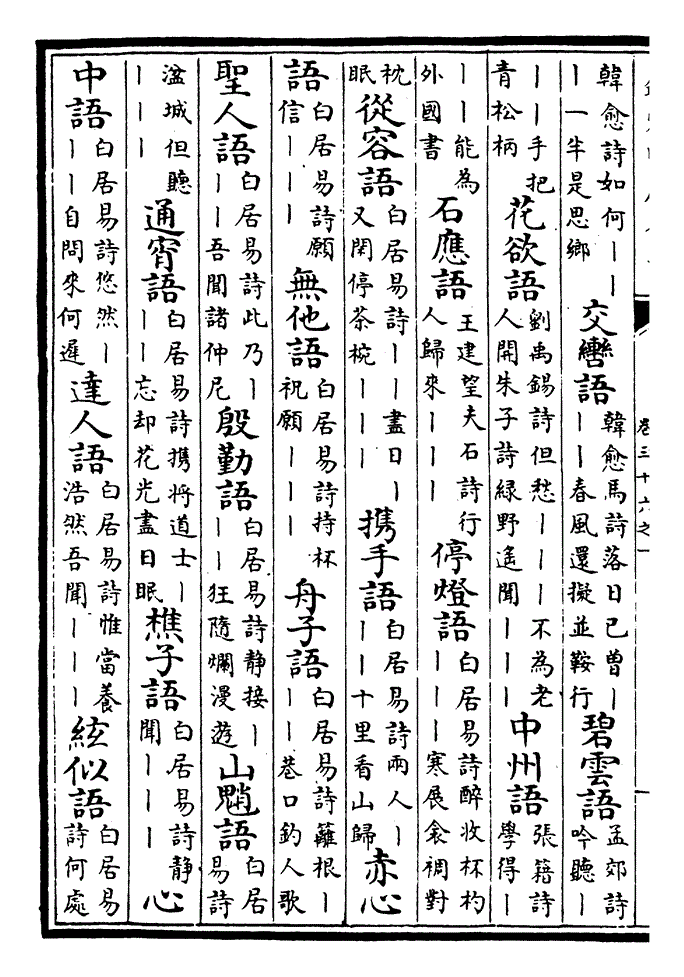 卷三十六之一
韓愈詩如何丨丨丨一半是思鄉 交轡語 韓愈馬詩落日已曾丨丨丨春風還擬並鞍行 碧雲語 孟郊詩吟聽丨
丨丨手把青松柄 花欲語 劉禹錫詩但愁丨丨丨不為老人開朱子詩緑野遙聞丨丨丨 中州語 張籍詩學得丨
丨丨能為外國書 石應語 王建望夫石詩行人歸來丨丨丨 停燈語 白居易詩醉收杯杓丨丨丨寒展衾裯對
枕眠 從容語 白居易詩丨丨盡日丨又閑停茶椀丨丨丨 携手語 白居易詩兩人丨丨丨十里看山歸 赤心
語 白居易詩願信丨丨丨 無他語 白居易詩持杯祝願丨丨丨 舟子語 白居易詩籬根丨丨丨巷口釣人歌
聖人語 白居易詩此乃丨丨丨吾聞諸仲尼 殷勤語 白居易詩静接丨丨丨狂隨爛漫遊 山魈語 白居易詩
湓城但聽丨丨丨 通宵語 白居易詩携將道士丨丨丨忘却花光盡日眠 樵子語 白居易詩静聞丨丨丨 心
中語 白居易詩悠然丨丨丨自問來何遲 達人語 白居易詩惟當養浩然吾聞丨丨丨 絃似語 白居易詩何處